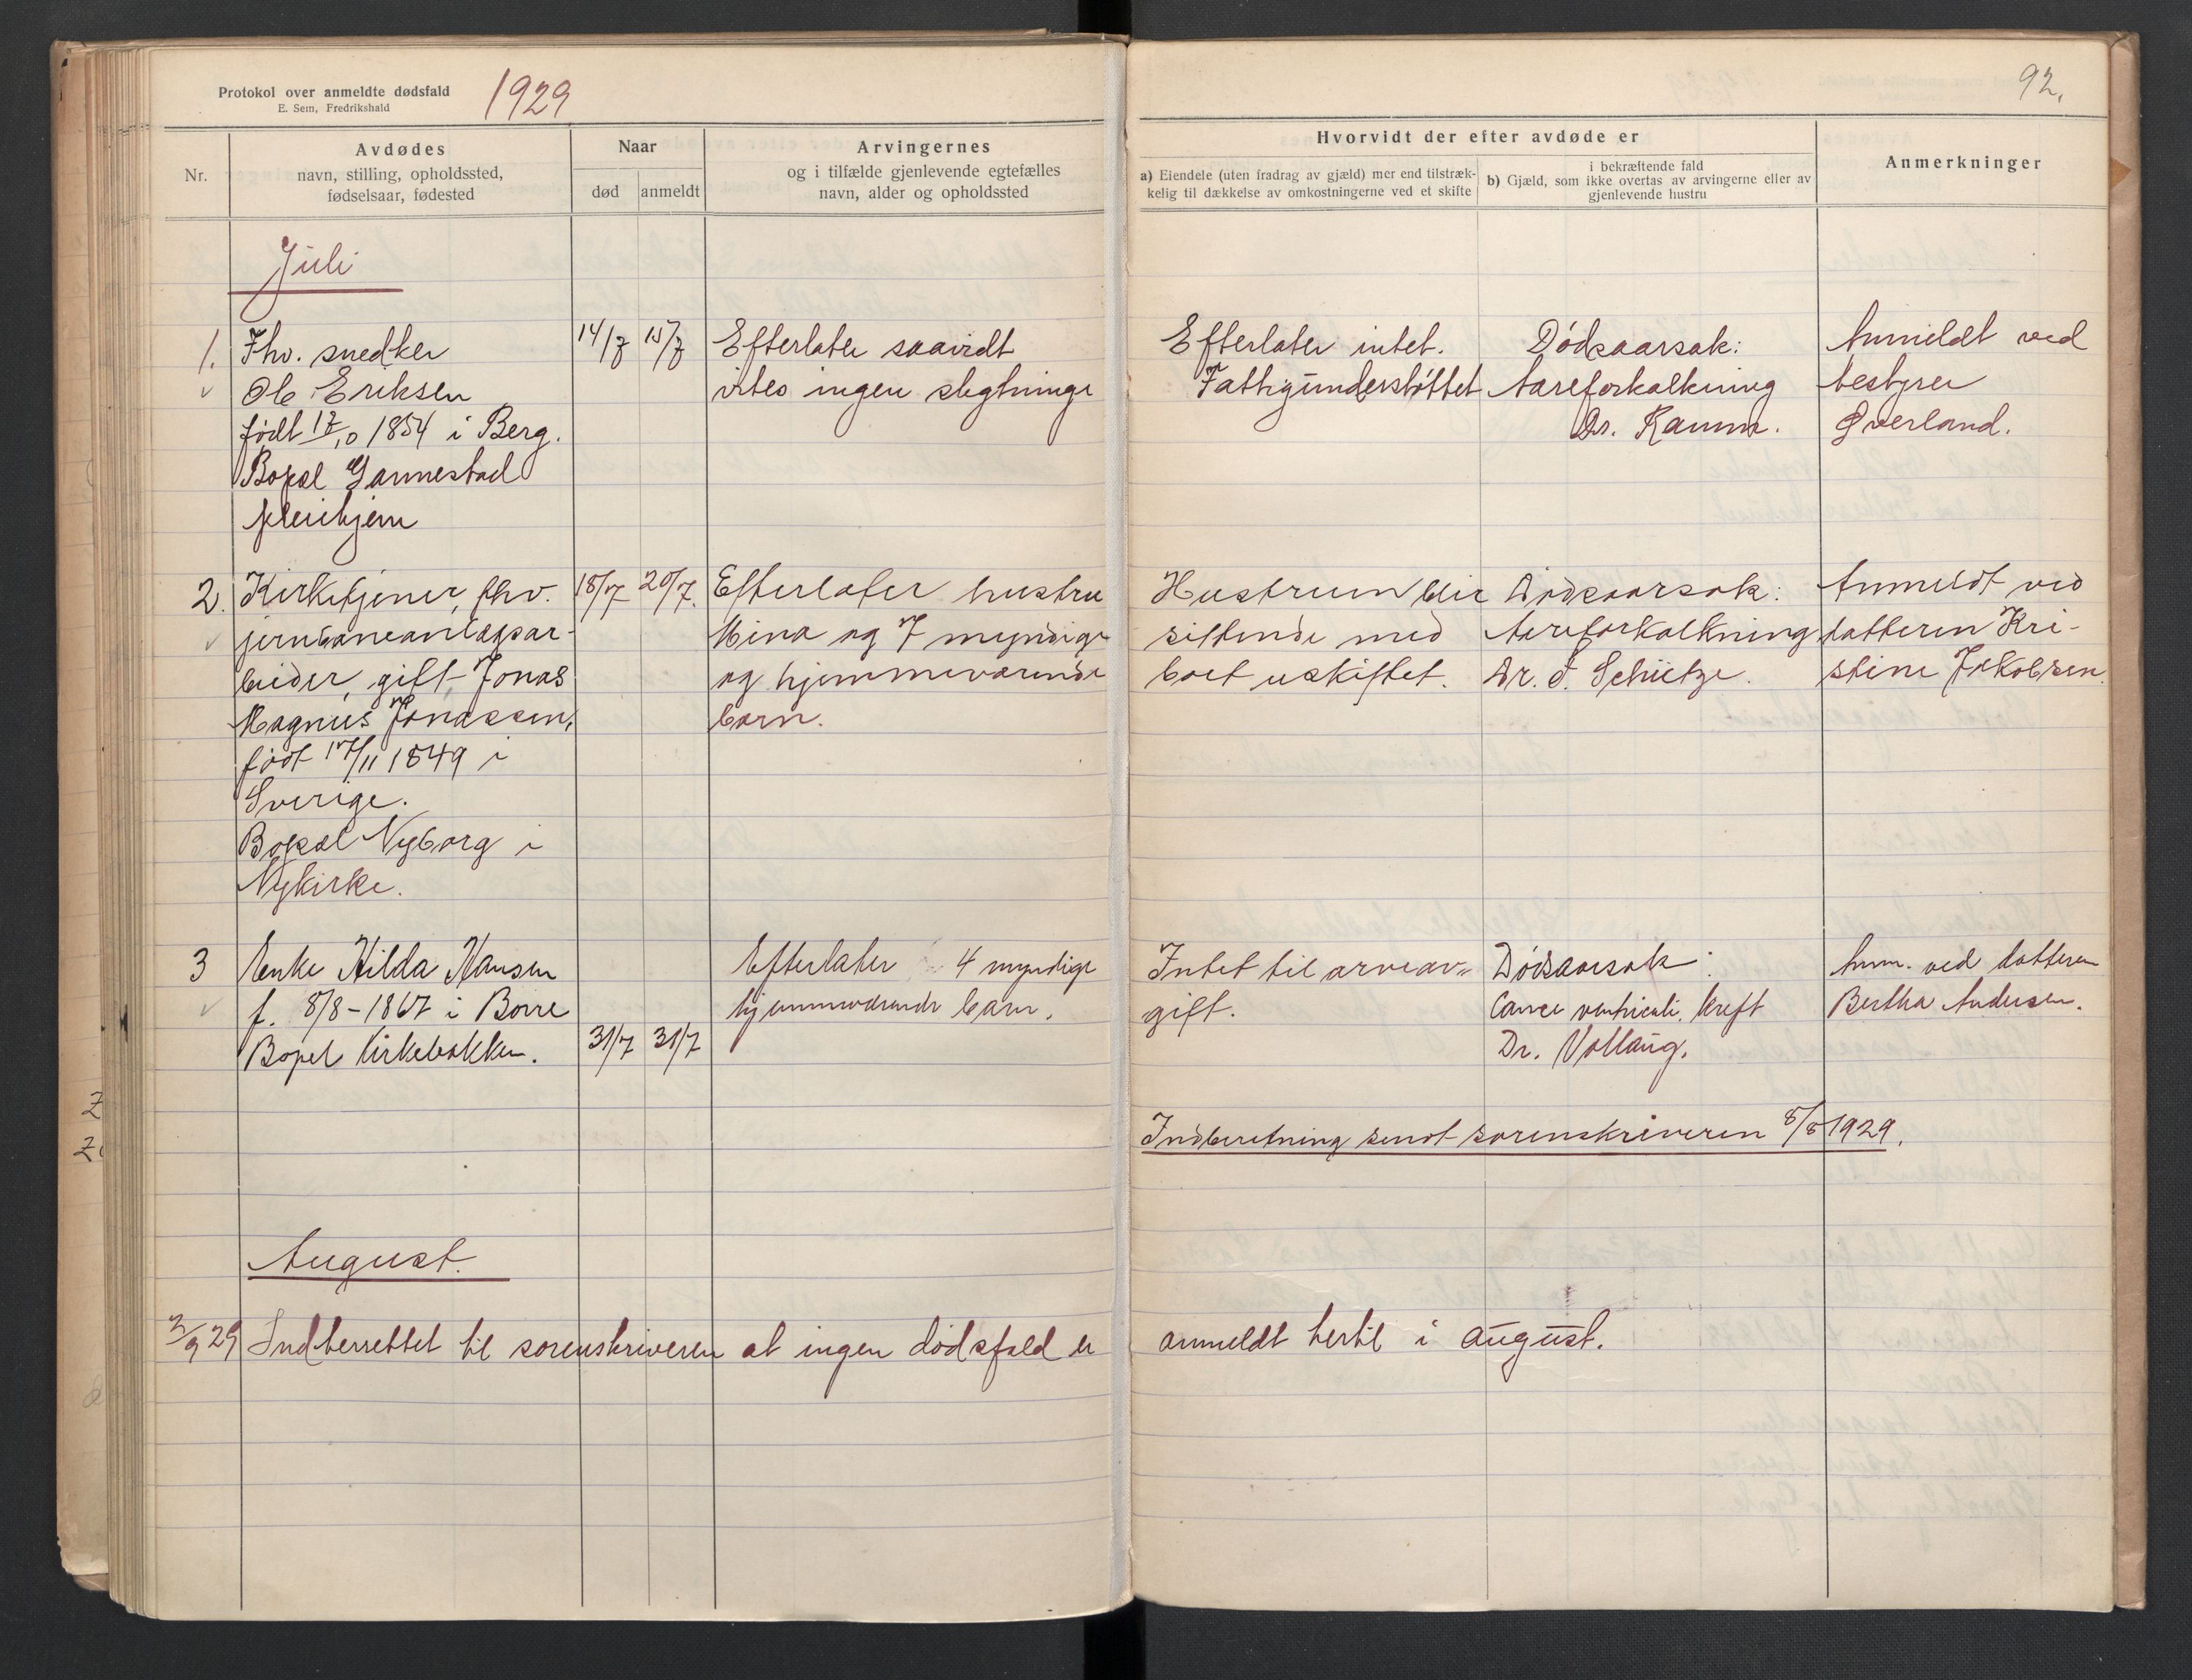 Protokol over anmeldte dødsfald
E. Sem, Fredrikshald
1929
92.
Nr.
Avdødes
navn, stilling, opholdssted,
fødselsaar, fødested
Naar
død
anmeldt
Arvingernes
og i tilfælde gjenlevende egtefælles
navn, alder og opholdssted
Hvorvidt der efter avdøde er
a) Eiendele (uten fradrag av gjæld) mer end tilstræk-
kelig til dækkelse av omkostningerne ved et skifte
i bekræftende fald
b) Gjæld, som ikke overtas av arvingerne eller av
gjenlevende hustru
Anmerkninger
Juli
1.
Fhv. snedker
Ole Eriksen
født 17/10 1854 i Berg.
Bopæl Gannestad
pleiehjem
14/7
15/7
Efterlater saavidt
vites ingen slegtninge
Efterlater intet.
Fattigunderstøttet
Dødsaarsak:
Aareforkalkning
Dr. Ramm.
Anmeldt ved
bestyrer
Øverland.
2.
Kirketjener, fhv.
jernbaneanlægsar-
beider, gift Jonas
Magnus Jonassen,
født 17/11 1849 i
Sverige.
Bopæl Nyborg i
Nykirke.
18/7
20/7.
Efterlater hustru
Mina og 7 myndige
og hjemmeværende
barn.
Hustruen blir
sittende med
boet uskiftet.
Dødsaarsak:
Aareforkalkning
Dr. F. Schützе.
Anmeldt ved
datteren Kri-
stine Jakobsen.
3
Enke Hilda Hansen
f. 8/8-1867 i Borre
Bopæl Kirkebakken.
31/7
31/7
Efterlater 4 myndige
hjemmeværende barn.
Intet til arveav-
gift.
Dødsaarsak:
Cancer ventriculi. kreft
Dr. Vollaug.
Anm. ved datteren
Bertha Andersen.
Indberetning sendt sorenskriveren 8/8 1929.
August.
3/9 29 Indberettet til sorenskriveren at ingen dødsfald er anmeldt hertil i august.